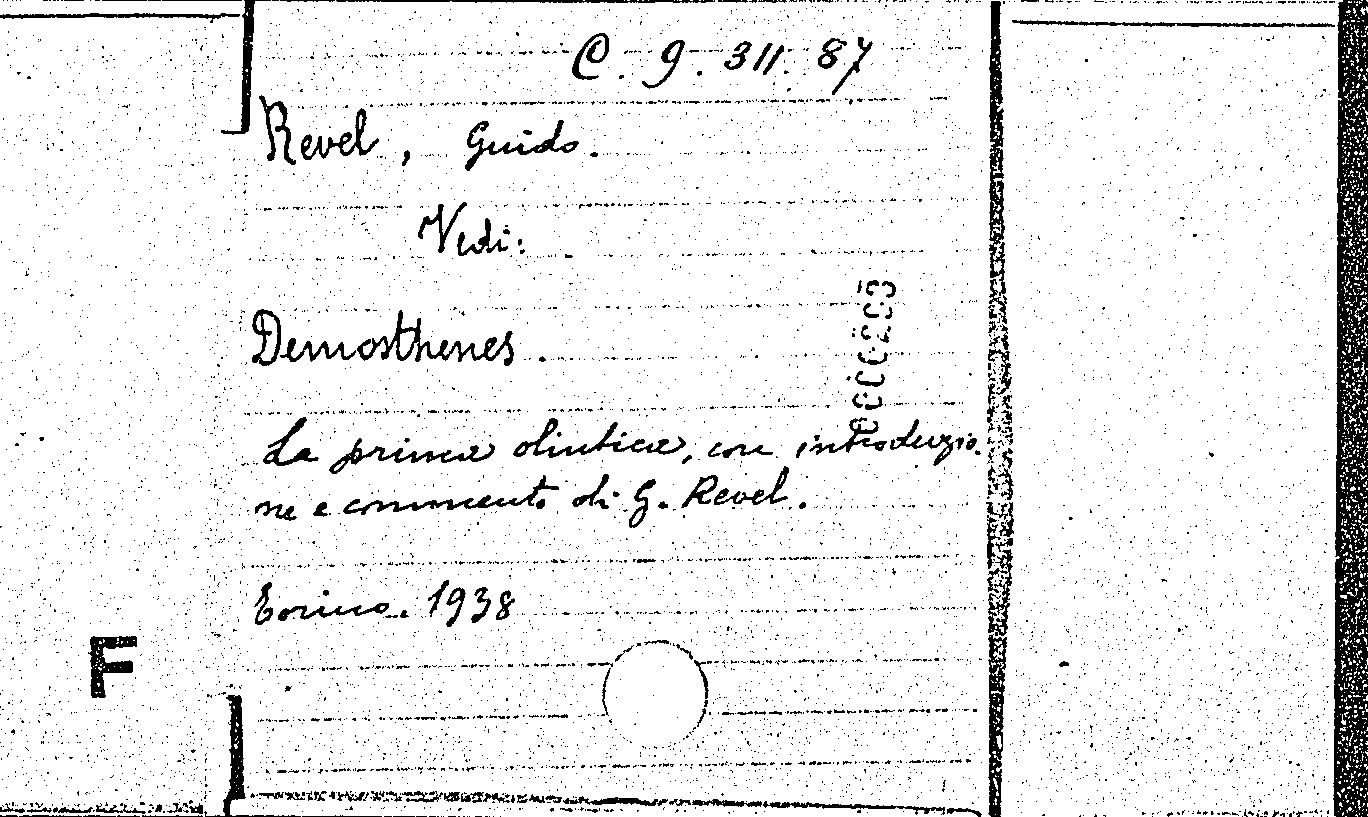 C. 9. 311. 87
Revel, Guido.
Vedi:
Demosthenes.
La prima olintica, con introduzio-
ne e commento di G. Revel.
Torino. 1938
F